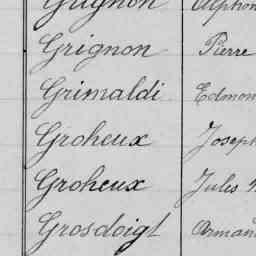 Grignon Alphon
Grignon Pierre
Grimaldi Edmon
Groheux Joseph
Groheux Jules
Grosdoigt Arman